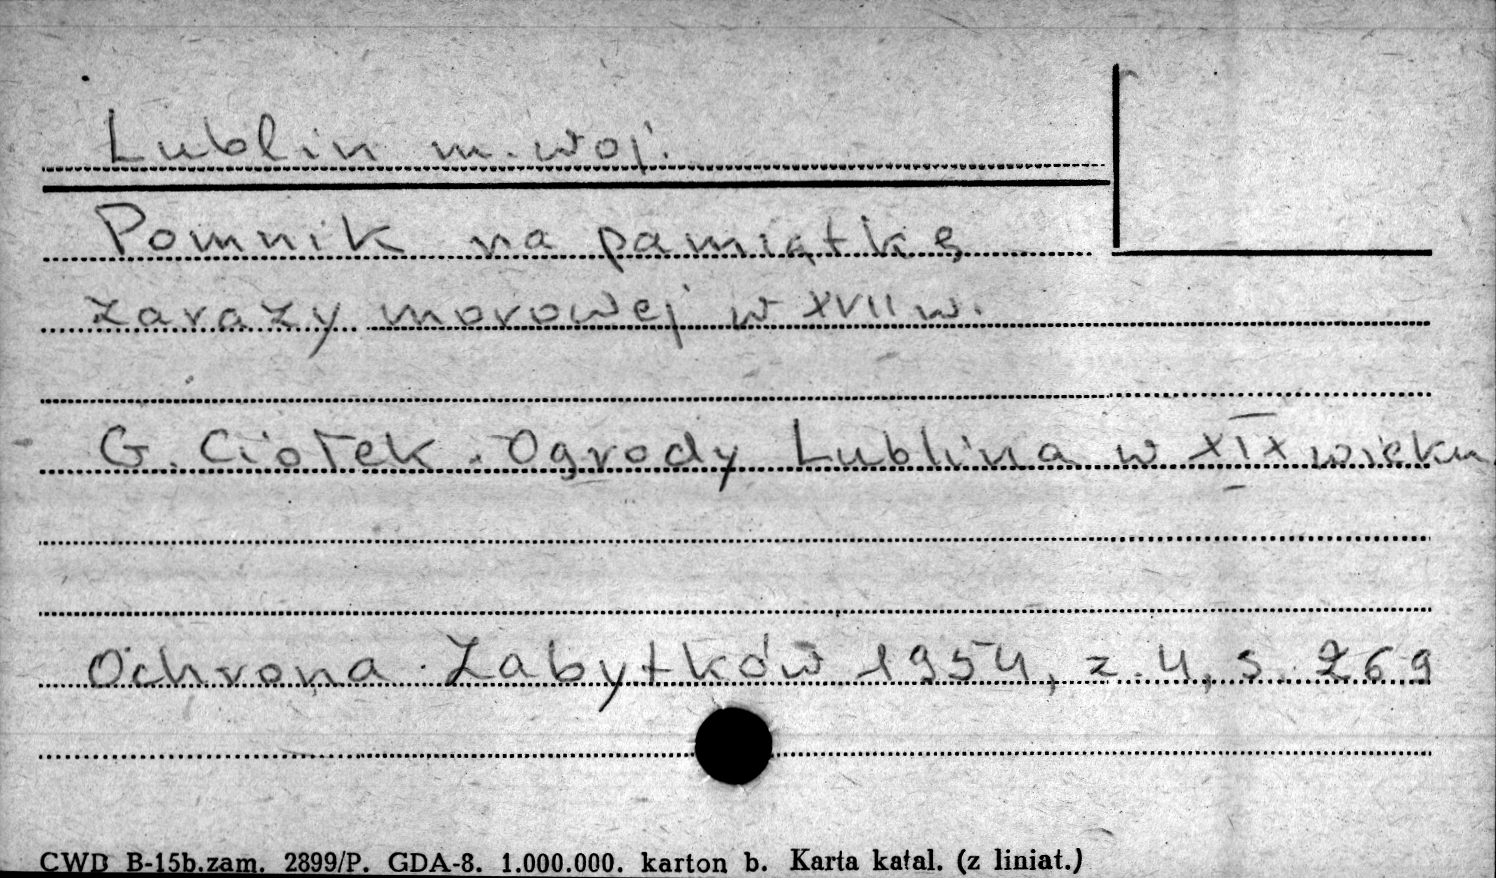 Lublin m. woj.
Pomnik na pamiątkę
zarazy morowej w XVII w.
G. Ciołek. Ogrody Lublina w XIX wieku
Ochrona Zabytków 1954, z. 4, s. 269
CWD B-15b.zam. 2899/P. GDA-8. 1.000.000. karton b. Karta katal. (z liniat.)